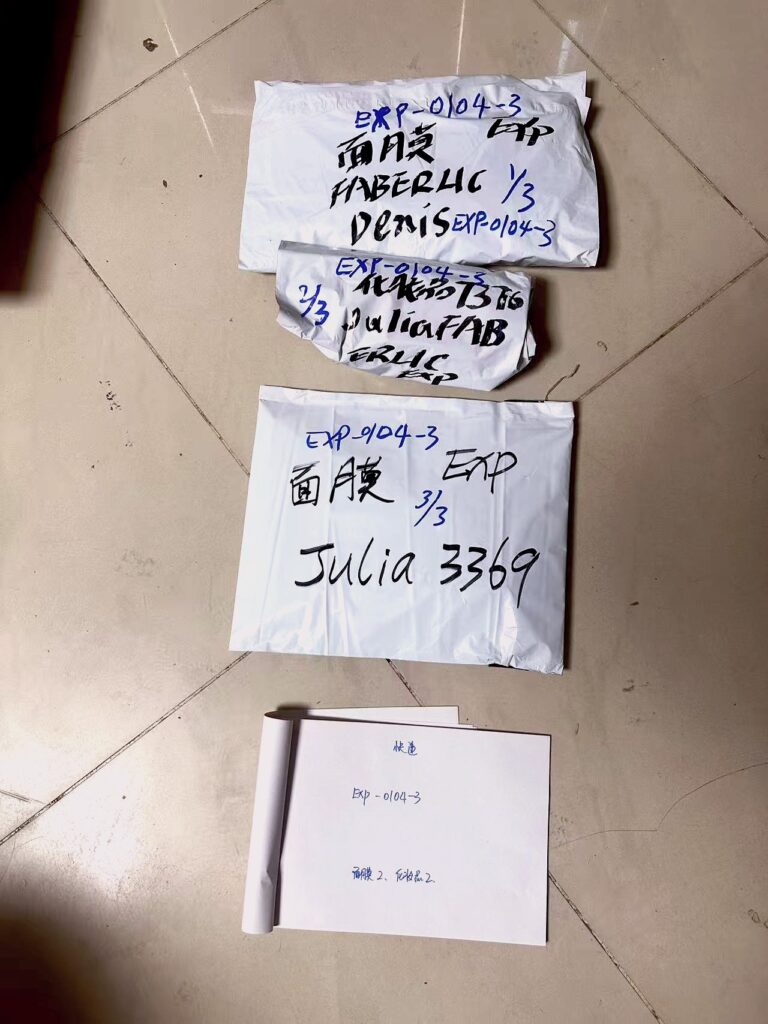 EXP-0104-3
面膜 EXP
FABERLIC 1/3
Denis EXP-0104-3
EXP-0104-3
2/3 化妆品
Julia FAB
ERLIC
EXP
EXP-0104-3
面膜 EXP
3/3
Julia 3369
快递
EXP-0104-3
面膜2、化妆品2、